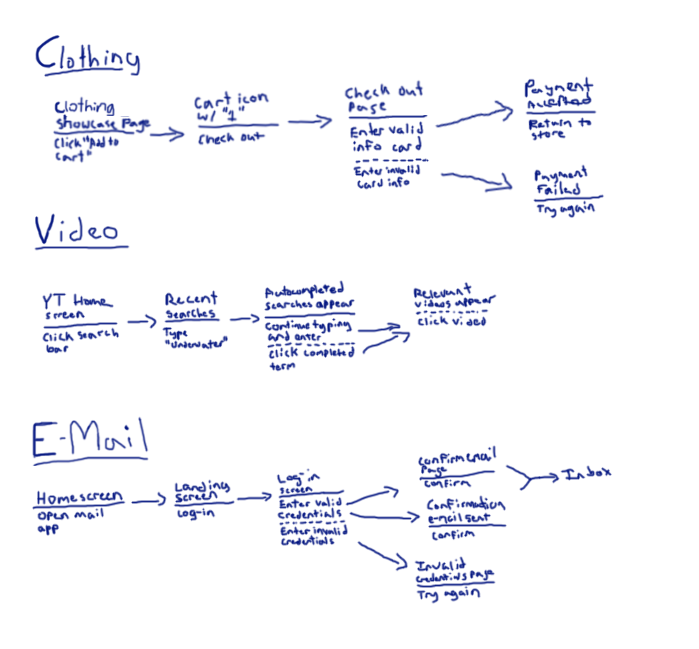 Clothing
Clothing
Showcase Page
Click "Add to
Cart"
Cart icon
w/ "1"
Check out
Check out
Page
Enter valid
info card
Enter invalid
Card info
Payment
Accepted
Return to
store
Payment
Failed
Try again
Video
YT Home
screen
Click search
bar
Recent
Searches
Type
"Underwater"
Autocompleted
searches appear
Continue typing
and enter
Click completed
term
Relevant
videos appear
Click video
E-Mail
Homescreen
Open mail
app
Landing
Screen
Log-in
Log in
screen
Enter valid
credentials
Enter invalid
credentials
Confirm email
Page
Confirm
Confirmation
e-mail sent
Confirm
Invalid
credentials page
Try again
Inbox